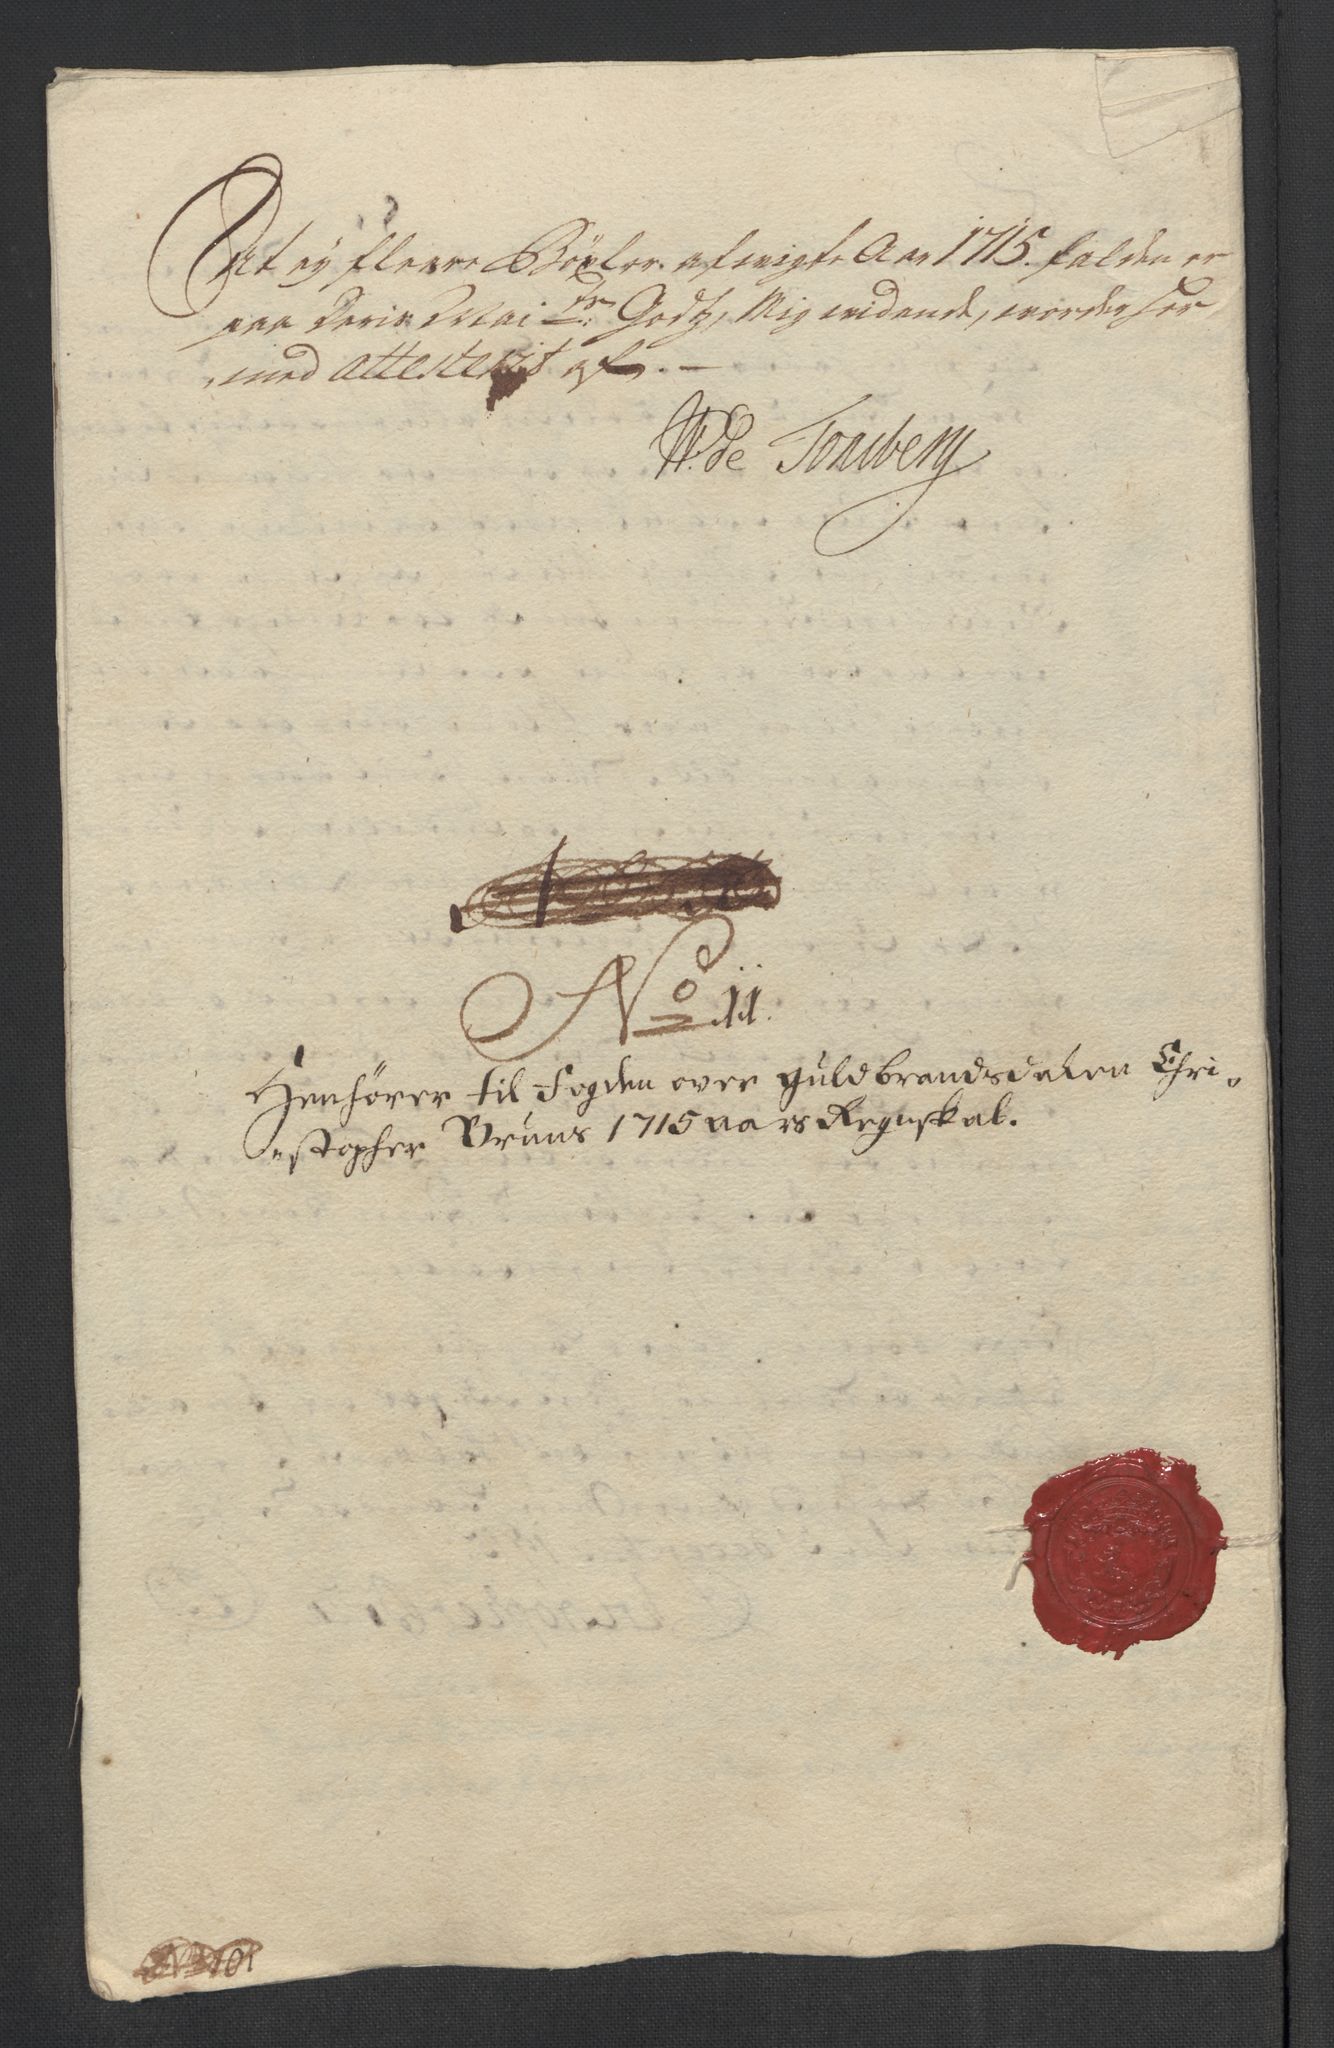 At ey fleere Böxler afvigte Aar 1715. falden er
paa Deris Maj:ts Godtz, Mig vidende, vorder her
med attesterit af. —
W. de Tonsberg
No 11.
Henhörer til Fogden over Guldbrandsdalen Chri-
stopher Bruuns 1715 aars Regnskab.